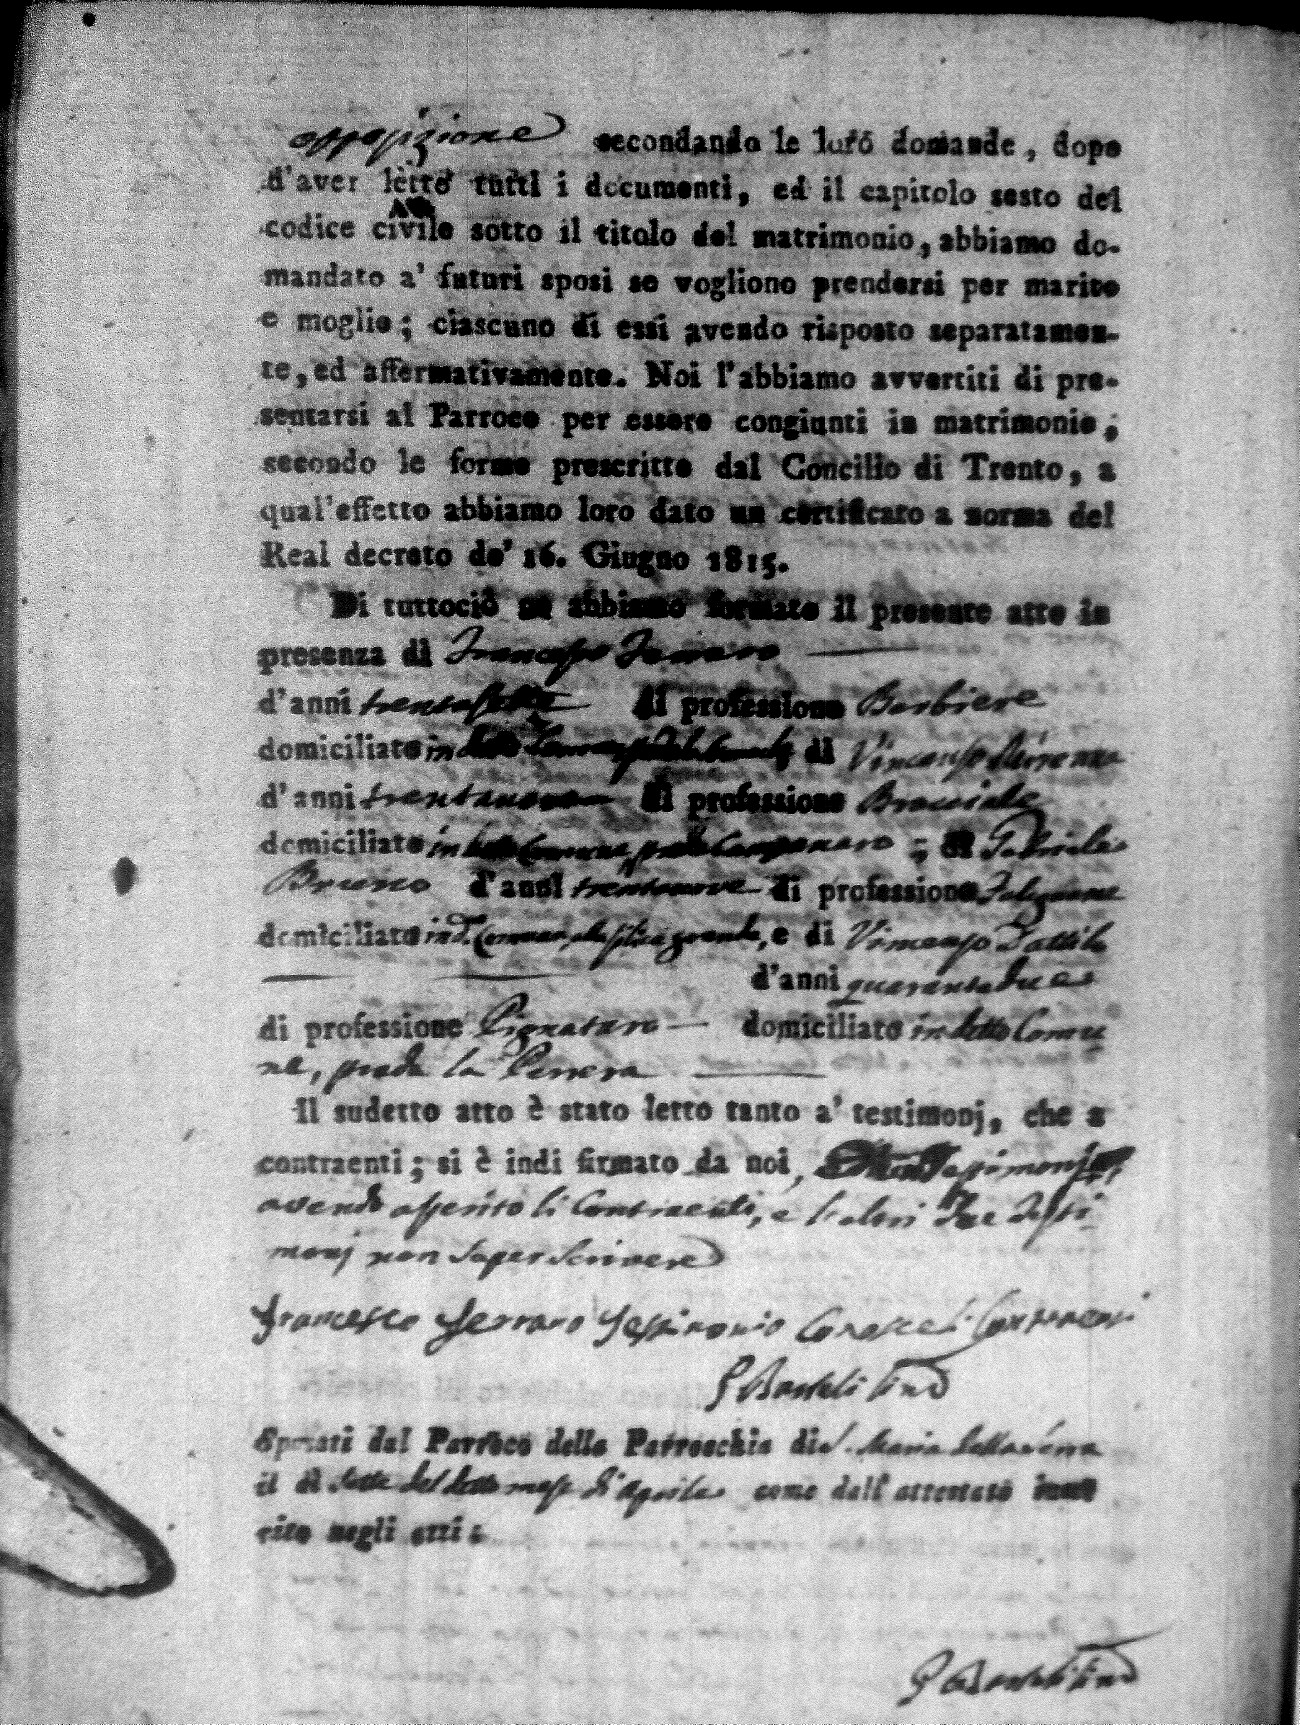 opposizione secondando le loro domande, dopo
d'aver letto tutti i documenti, ed il capitolo sesto del
codice civile sotto il titolo del matrimonio, abbiamo do-
mandato a' futuri sposi se vogliono prendersi per marito
e moglie; ciascuno di essi avendo risposto separatamen-
te, ed affermativamente. Noi l'abbiamo avvertiti di pre-
sentarsi al Parroco per essere congiunti in matrimonio,
secondo le forme prescritte dal Concilio di Trento, a
qual'effetto abbiamo loro dato un certificato a norma del
Real decreto de' 16. Giugno 1815.
Di tuttociò ne abbiamo formato il presente atto in
presenza di Francesco Ferraro
d'anni trentasette di professione Barbiere
domiciliato in di Vincenzo
d'anni trentanove di professione Bracciale
domiciliato in Comune, ; di Gabriele
Bruno d'anni trentanove di professione Falegname
domiciliato in d. Comune, e di Vincenzo
d'anni quarantadue
di professione Pignataro domiciliato in detto Comu
ne, la
Il sudetto atto è stato letto tanto a' testimonj, che a
contraenti; si è indi firmato da noi,
avendo asserito li Contraenti, e li altri due Testi
monj non saper scrivere
Francesco Ferraro Testimonio
Sposati dal Parroco della Parrocchia di S. Maria
il dì sette del detto mese d'Aprile come dall'attestato inse
rito negli atti: